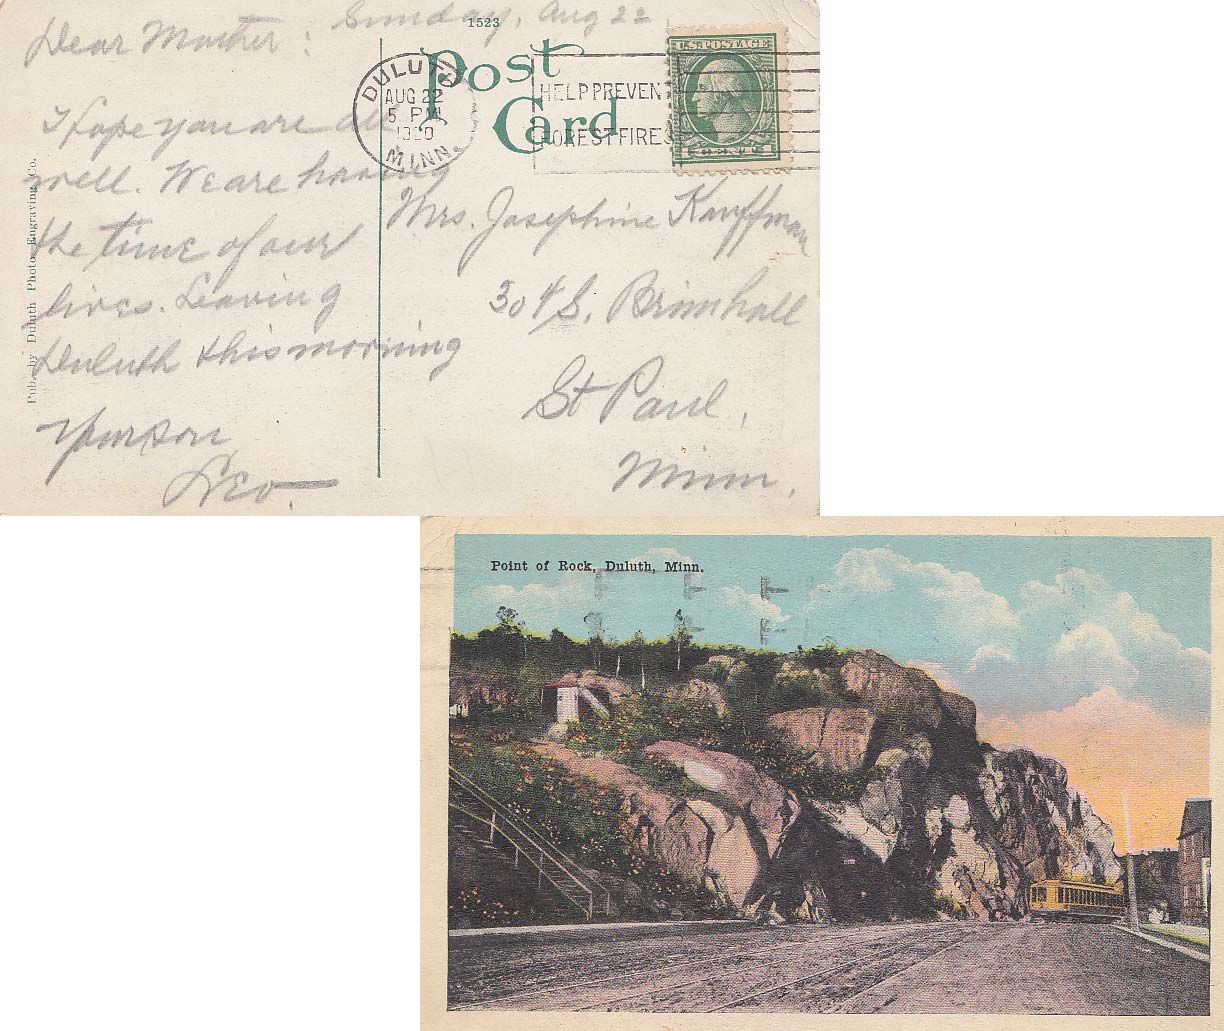 Sunday, Aug 22
1523
Dear Mother:
Post
Card
DULUTH
AUG 22
5 PM
1920
MINN.
HELP PREVENT
FOREST FIRES
U.S. POSTAGE
I hope you are all
well. We are having
the time of our
lives. Leaving
Duluth this morning
Your son
Leo.
Mrs. Josephine Kauffman
304 S. Brimhall
St Paul,
Minn.
Pub. by Duluth Photo Engraving Co.
Point of Rock, Duluth, Minn.